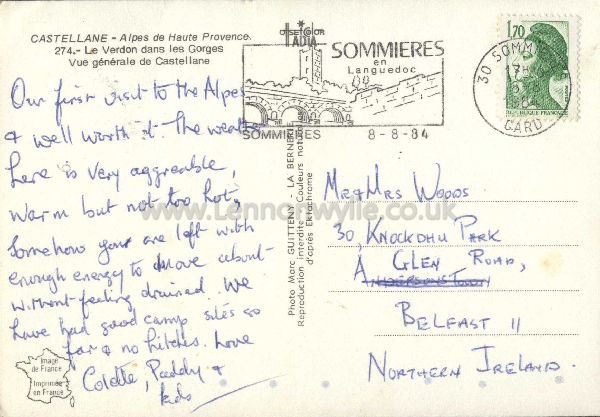 CASTELLANE - Alpes de Haute Provence.
274.- Le Verdon dans les Gorges
Vue générale de Castellane
Our first visit to the Alpes
& well worth it. The weather
here is very aggreable,
warm but not too hot,
Somehow your are left with
enough energy to move about
without feeling drained. We
have had good camp sites so
far & no hitches. Love
Colette, Paddy &
kids
Image
de France
Imprimée
en France
SOMMIERES
en
Languedoc
SOMMIERES 8-8-84
Photo Marc GUITTENY - LA BERNERIE
Reproduction interdite Couleurs naturelles
d'après Ektachrome
30 SOMM
17H
8
1984
GARD
1,70
REPUBLIQUE FRANÇAISE
Mr & Mrs Woods
30, Knockdhu Park
Glen Road,
Andersonstown
Belfast 11
Northern Ireland.
www.Lennonwylie.co.uk